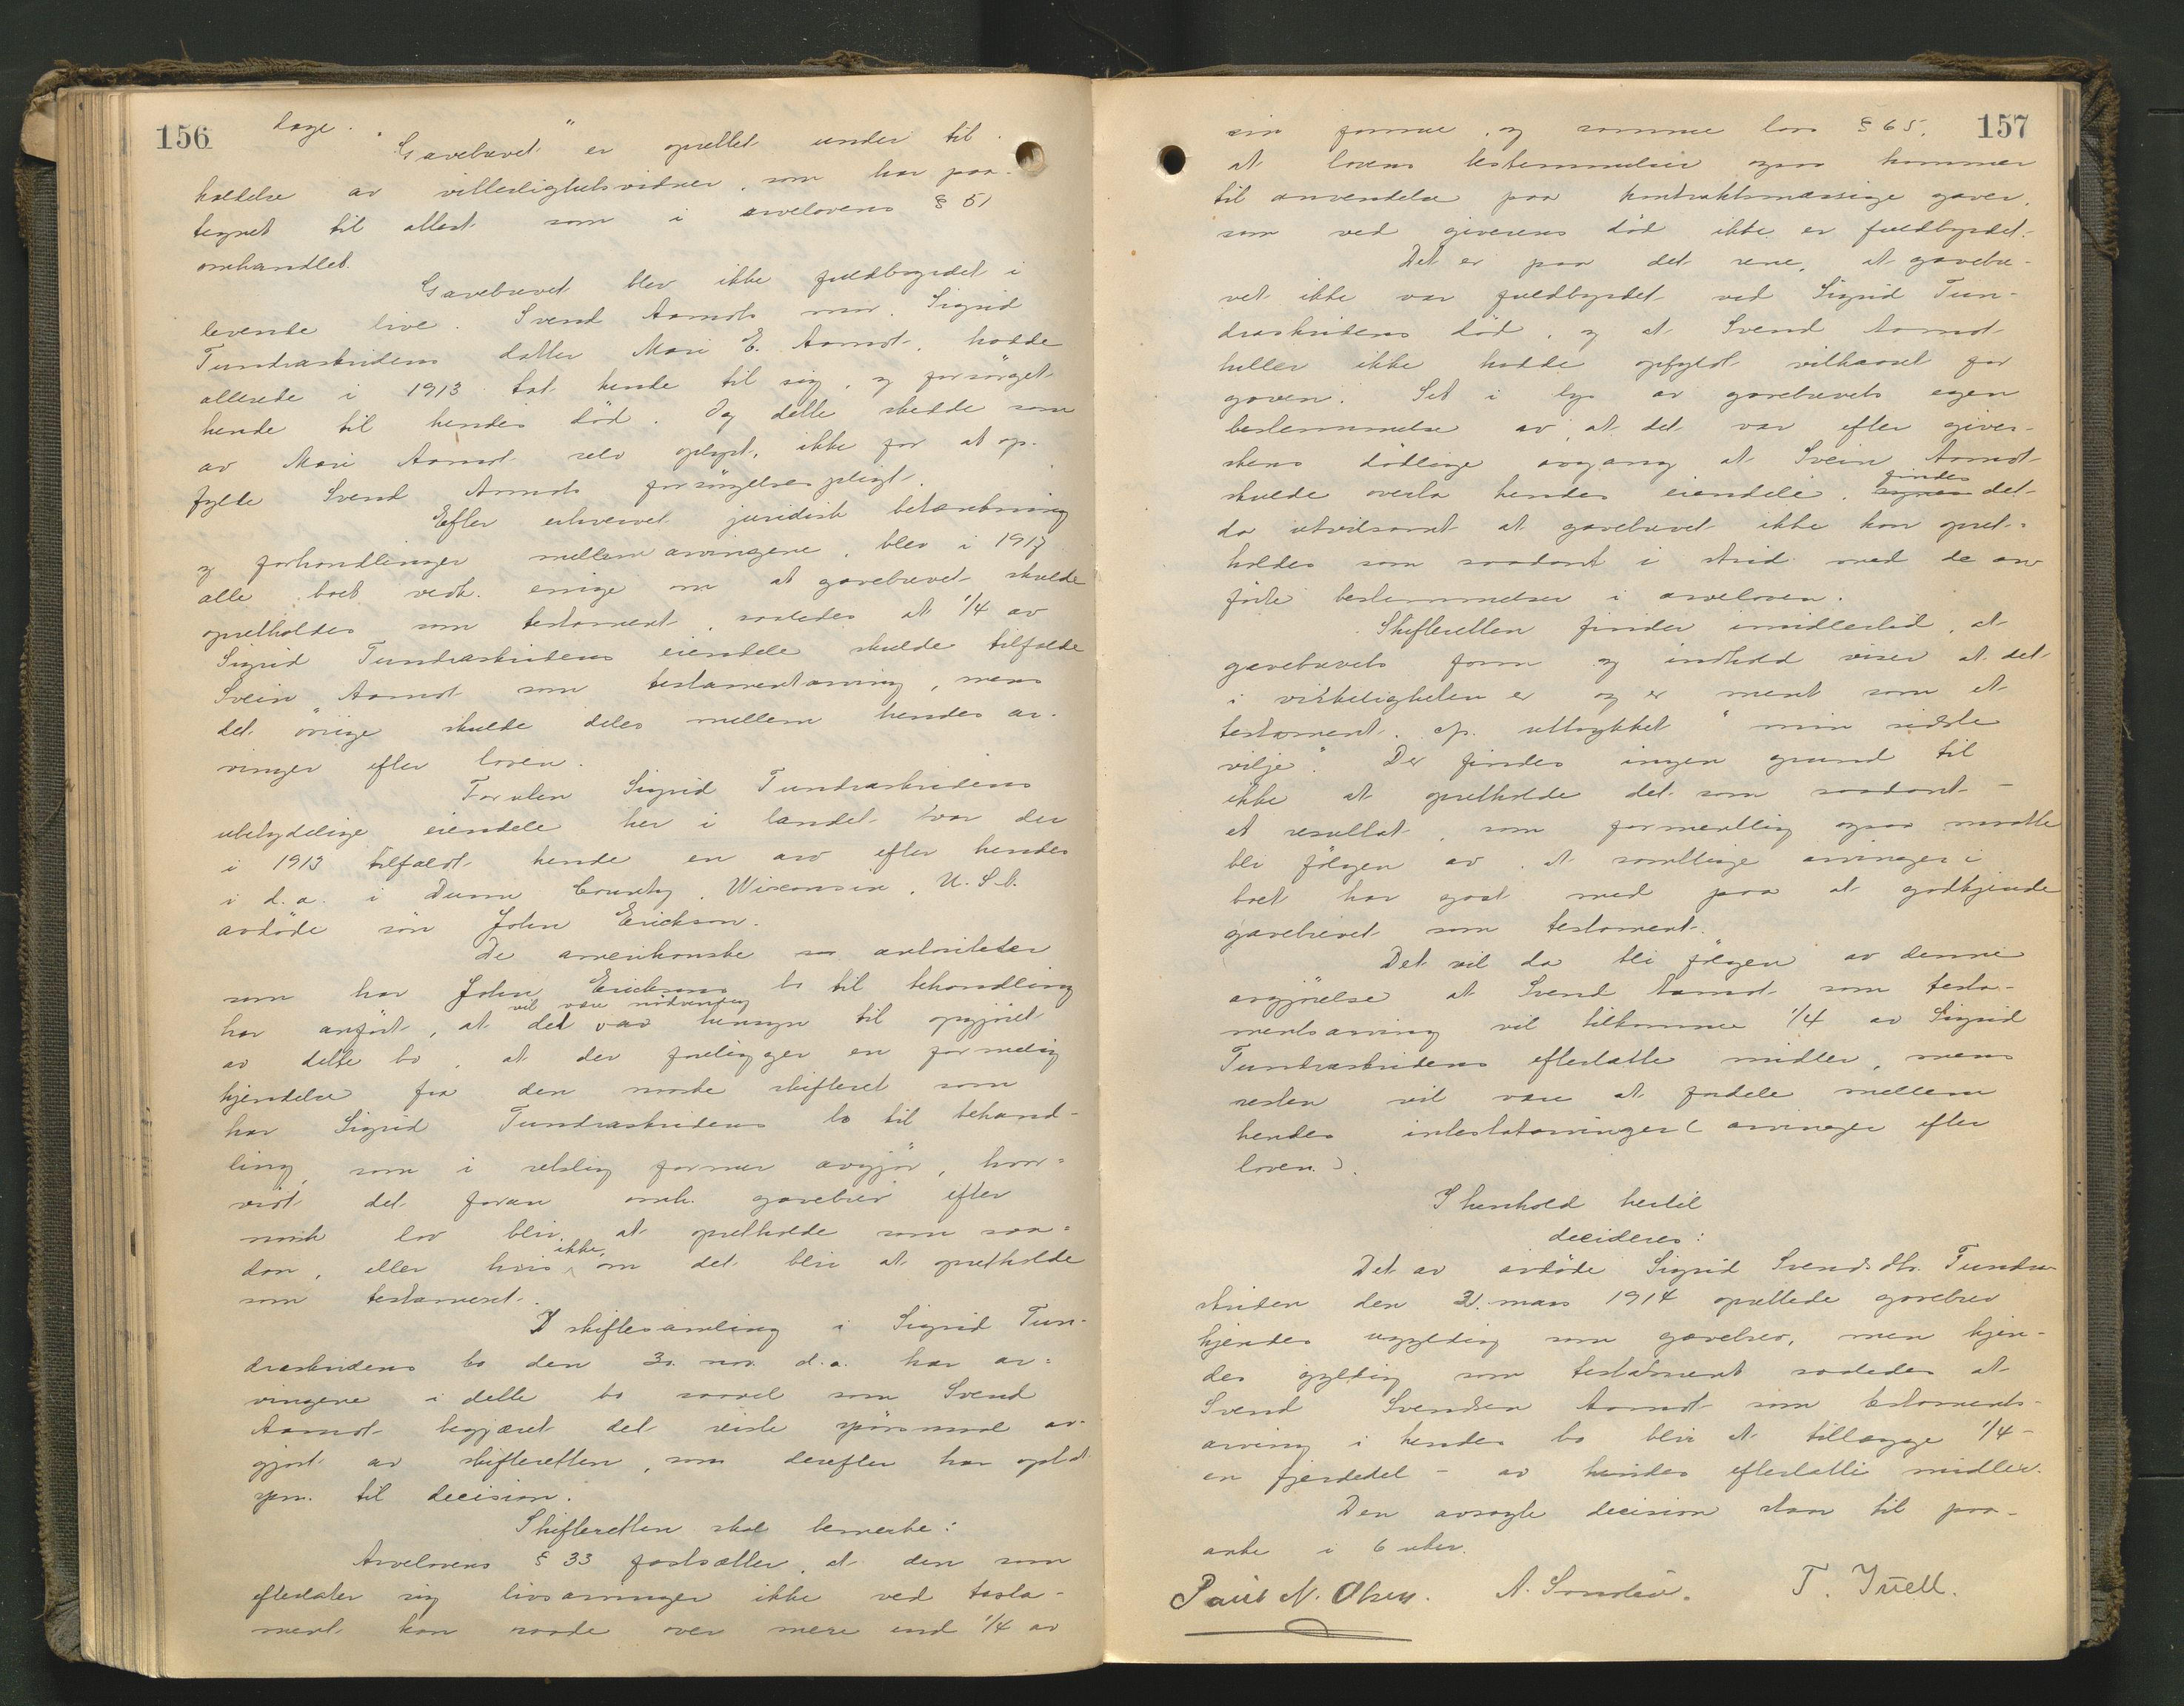 156
dage.
"Gavebrevet" er oprettet under til
kaldelse av vitterlighetsvidner, som har paa-
tegnet til attest som i arvelovens § 51
omhandlet.
Gavebrevet blev ikke fuldbyrdet i
levende live. Svend Aamots mor, Sigrid
Tundraskridens datter Mari E. Aamot, hadde
allerede i 1913 tat hende til sig, og forsörget
hende til hendes död. Og dette skedde som
av Mari Aamot selv oplyst, ikke for at op-
fylde Svend Aamots forsörgelsespligt.
Efter erhvervet juridisk betænkning
og forhandlinger mellem arvingene, blev i 1917
alle boet vedk. enige om at gavebrevet skulde
opretholdes som testament, saaledes at 1/4 av
Sigrid Tundraskridens eiendele skulde tilfalde
Svein Aamot som testamentarving, mens
det övrige skulde deles mellem hendes ar-
vinger efter loven.
Foruten Sigrid Tundraskridens
ubetydelige eiendele her i landet var der
i 1913 tilfaldt hende en arv efter hendes
i d. a. i Dunn County, Wisconsin, U.S.A.
avdöde sön John Erickson.
De amerikanske autoriteter
som har John Ericksons bo til behandling
vil være nödvendig
har anfört, at det av hensyn til opgjöret
av dette bo, at der foreligger en formelig
kjendelse fra den norske skifteret som
har Sigrid Tundraskridens bo til behand-
ling, som i retslig former avgjör, hvor-
vidt det foran omh. gavebrev efter
norsk lov blir at opretholde som saa-
dan, eller hvis ikke om det blir at opretholde
som testament.
I skiftesamling i Sigrid Tun-
draskridens bo den 30. nov. d.a. har ar-
vingene i dette bo saavel som Svend
Aamot begjæret det reiste spörsmaal av-
gjort av skifteretten, som derefter har optat
spm. til decision.
Skifteretten skal bemerke:
Arvelovens § 33 fastsætter, at den som
efterlater sig livsarvinger ikke ved testa-
ment kan raade over mere end 1/4 av
157
sin formue, og samme lovs § 65,
at lovens bestemmelser ogsaa kommer
til anvendelse paa kontraktsmæssige gaver,
som ved giverens död ikke er fuldbyrdet.
Det er paa det rene, at gavebre-
vet ikke var fuldbyrdet ved Sigrid Tun-
draskridens död, og at Svend Aamot
heller ikke hadde opfyldt vilkaaret for
gaven. Set i lys av gavebrevets egen
bestemmelse av, at det var efter giver-
skens dödlige avgang at Svein Aamot
skulde overta hendes eiendele, synes findes det
da utvilsomt at gavebrevet ikke kan opret-
holdes som saadant i strid med de an-
förte bestemmelser i arveloven.
Skifteretten finder imidlertid, at
gavebrevets form og indhold viser at det
i virkeligheten er og er ment som et
testament, cfr. uttrykket "min sidste
vilje". Der findes ingen grund til
ikke at opretholde det som saadant -
et resultat, som formentlig ogsaa maatte
bli fölgen av, at samtlige arvinger i
boet har gaat med paa at godkjende
gavebrevet som testament.
Det vil da bli fölgen av denne
avgjörelse at Svend Aamot som testa-
mentsarving vil tilkomme 1/4 av Sigrid
Tundraskridens efterlatte midler, mens
resten vil være at fordele mellem
hendes intestatarvinger (arvinger efter
loven).
I henhold hertil
decideres:
Det av avdöde Sigrid Svendsdtr. Tundra-
skriden den 21. mars 1914 oprettede gavebrev
kjendes ugyldig som gavebrev, men kjen-
des gyldig som testament saaledes at
Svend Svendsen Aamot som testaments-
arving i hendes bo blir at tillægge 1/4 -
en fjerdedel - av hendes efterlatte midler.
Den avsagte decision staar til paa-
anke i 6 uker.
Paul N. Olsen. T. Juell.